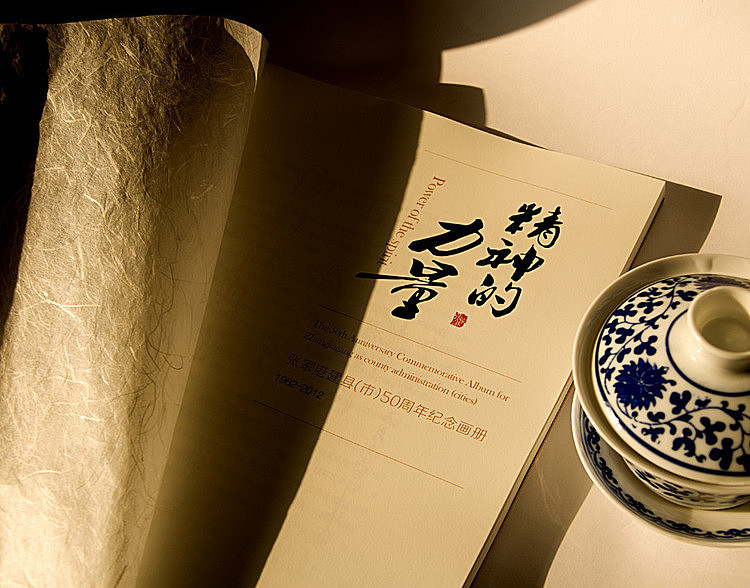 精神的
力量
Power of the spirit
The 50th Anniversary Commemorative Album for
Zhangjiagang as county administration (cities)
张家港建县(市)50周年纪念画册
1962-2012